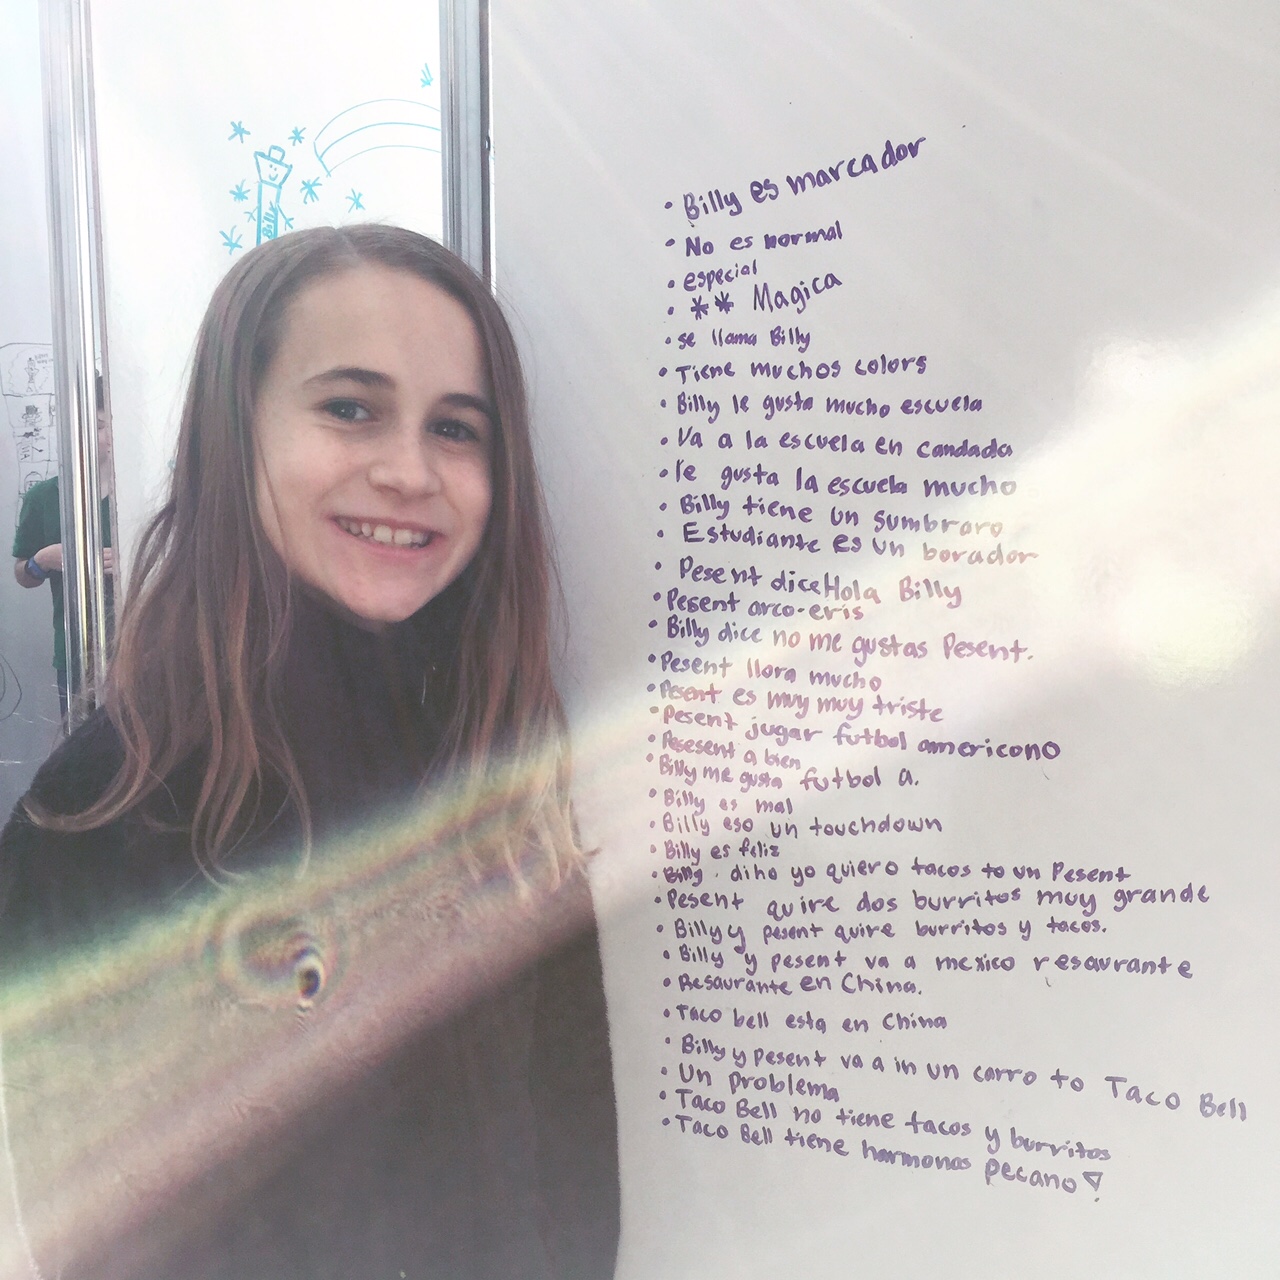 Billy
• Billy es marcador
• No es normal
• especial
• ** Magica
• se llama Billy
• Tiene muchos colors
• Billy le gusta mucho escuela
• Va a la escuela en candada
• le gusta la escuela mucho
• Billy tiene un sumbraro
• Estudiante es un borador
• Pesent dice Hola Billy
• Pesent arco-eris
• Billy dice no me gustas Pesent.
• Pesent llora mucho
• Pesent es muy muy triste
• Pesent jugar futbol americono
• Pesesent a bien
• Billy me gusta futbol a.
• Billy es mal
• Billy eso un touchdown
• Billy es feliz
• Billy . diho yo quiero tacos to un Pesent
• Pesent quire dos burritos muy grande
• Billy y pesent quire burritos y tacos.
• Billy y pesent va a mexico resaurante
• Resaurante en China.
• Taco bell esta en China
• Billy y pesent va a in un carro to Taco Bell
• Un problema
• Taco Bell no tiene tacos y burritos
• Taco Bell tiene harmonas pecano!